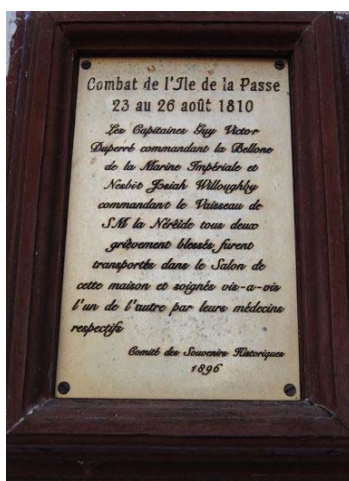 Combat de l'Ile de la Passe
23 au 26 août 1810
Les Capitaines Guy Victor
Duperré commandant la Bellone
de la Marine Impériale et
Nesbit Josiah Willoughby
commandant le Vaisseau de
SM la Néréide tous deux
grièvement blessés furent
transportés dans le Salon de
cette maison et soignés vis-a-vis
l'un de l'autre par leurs médecins
respectifs
Comité des Souvenirs Historiques
1896